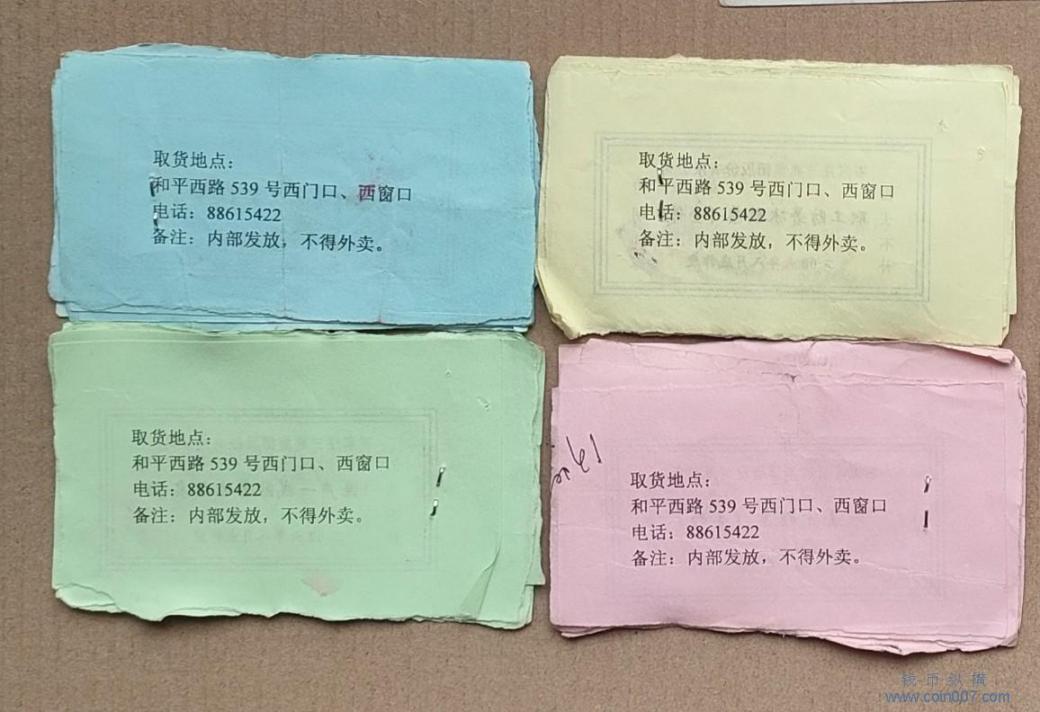 取货地点：
和平西路 539 号西门口、西窗口
电话：88615422
备注：内部发放，不得外卖。
取货地点：
和平西路 539 号西门口、西窗口
电话：88615422
备注：内部发放，不得外卖。
取货地点：
和平西路 539 号西门口、西窗口
电话：88615422
备注：内部发放，不得外卖。
取货地点：
和平西路 539 号西门口、西窗口
电话：88615422
备注：内部发放，不得外卖。
钱币纵横
www.coin007.com